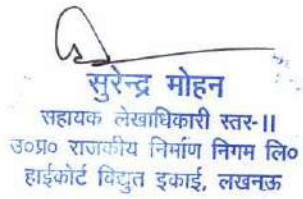 सुरेन्द्र मोहन
सहायक लेखाधिकारी स्तर-II
उ०प्र० राजकीय निर्माण निगम लि०
हाईकोर्ट विद्युत इकाई, लखनऊ